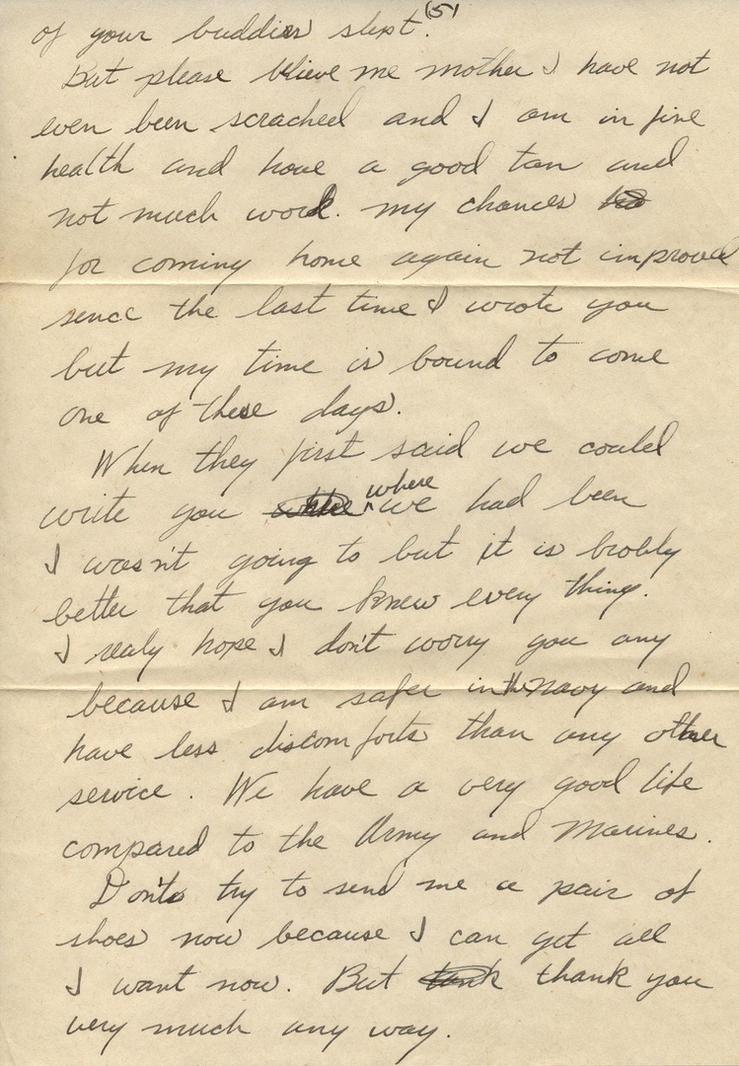 (5)
of your buddies slept.
But please blieve me mother I have not
even been scrached and I am in fine
health and have a good tan and
not much work. my chances
for coming home again not improved
sence the last time I wrote you
but my time is bound to come
one of these days.
When they first said we could
write you where we had been
I wasn't going to but it is brobly
better that you knew every thing.
I realy hope I don't worry you any
because I am safer in the navy and
have less discomforts than any other
service. We have a very good life
compared to the Army and Marines.
Dont try to send me a pair of
shoes now because I can get all
I want now. But thank you
very much any way.